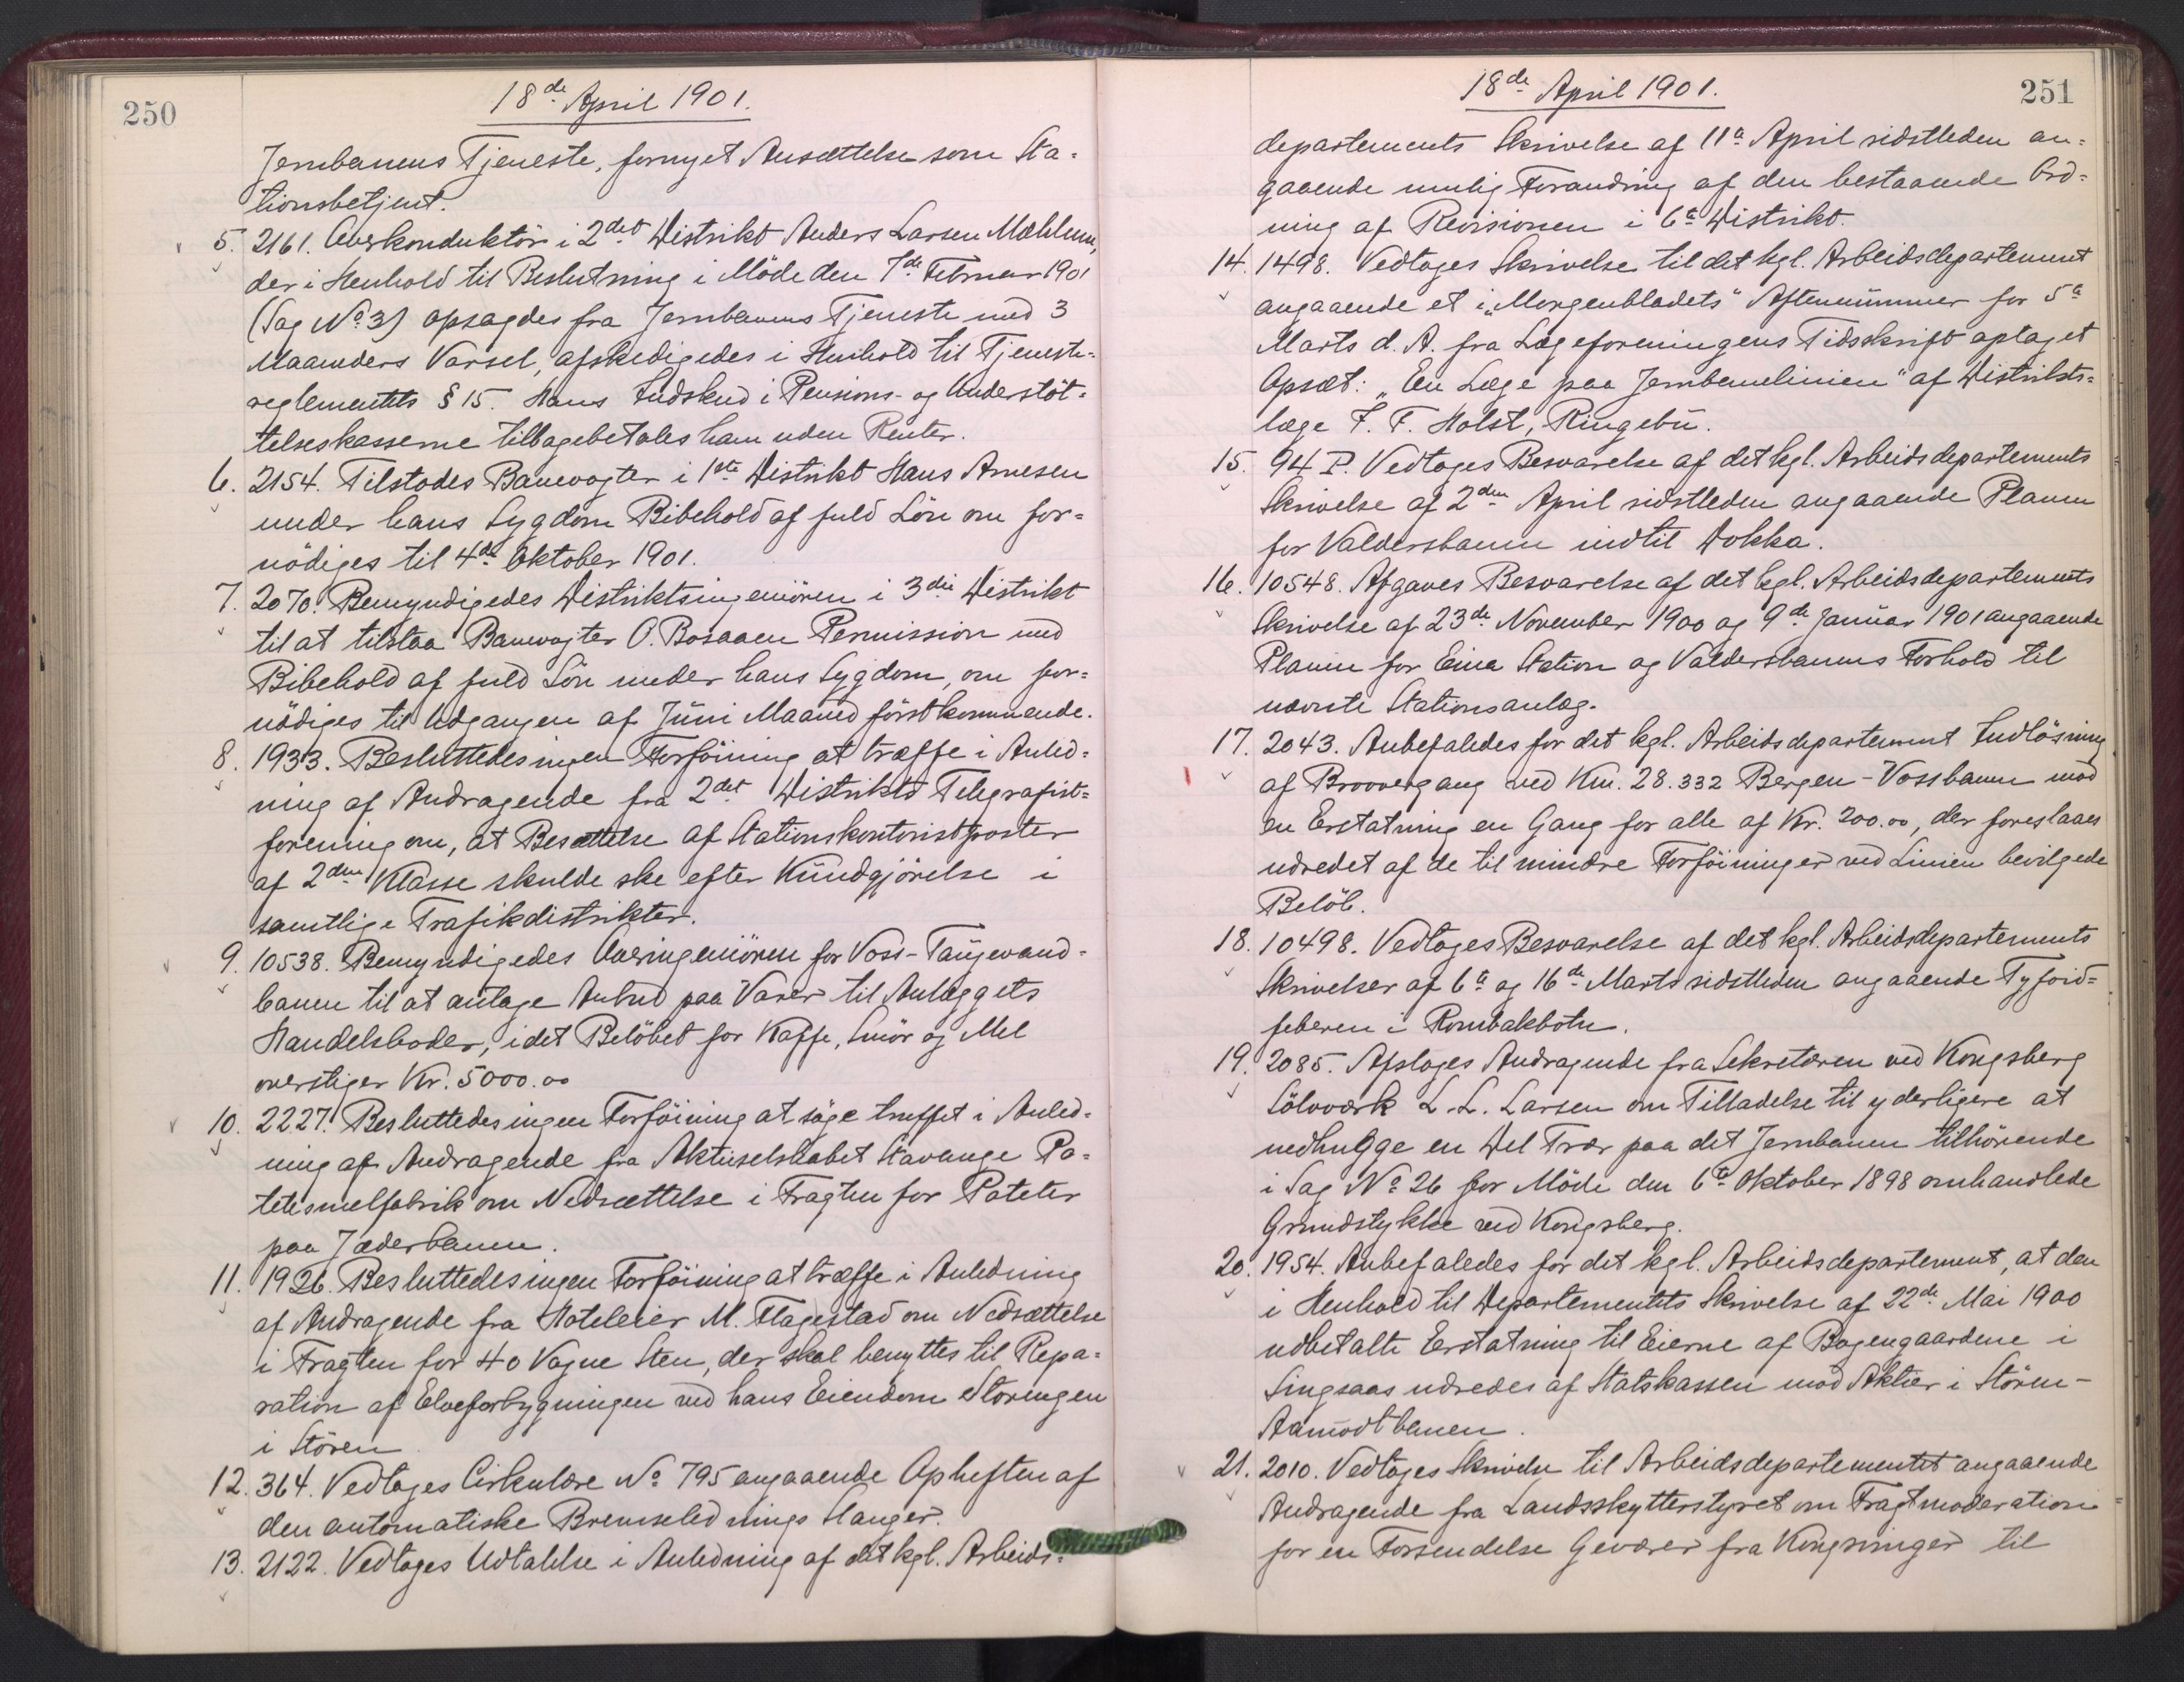 250
18de April 1901.
Jernbanens Tjeneste, fornyet Ansættelse som Sta=
tionsbetjent.
5. 2161. Overkonduktör i 2det Distrikt Anders Larsen Mæhlum,
der i Henhold til Beslutning i Möde den 7de Februar 1901
(Sag No 3) opsagdes fra Jernbanens Tjeneste med 3
Maaneders Varsel, afskedigedes i Henhold til Tjeneste=
reglementets § 15. Hans Indskud i Pensions- og Understöt=
telseskasserne tilbagebetales ham uden Renter.
6. 2154. Tilstodes Banevogter i 1ste Distrikt Hans Arnesen
under hans Sygdom Bibehold af fuld Lön om for=
nödiges til 4de Oktober 1901.
7. 2070. Bemyndigedes Distriktsingeniören i 3die Distrikt
til at tilstaa Banevogter O. Bosaaen Permission med
Bibehold af fuld Lön under hans Sygdom, om for=
nödiges til Udgangen af Juni Maaned förstkommende.
8. 1933. Besluttedes ingen Forföining at træffe i Anled=
ning af Andragende fra 2det Distrikts Telegrafist=
forening om, at Besættelse af Stationskontoristposter
af 2den Klasse skulde ske efter Kundgjörelse i
samtlige Trafikdistrikter.
9. 10538. Bemyndigedes Overingeniören for Voss-Taugevand=
banen til at antage Anbud paa Varer til Anlæggets
Handelsboder, idet Belöbet for Kaffe, Smör og Mel
overstiger Kr. 5000.00
10. 2227. Besluttedes ingen Forföining at söge truffet i Anled=
ning af Andragende fra Aktieselskabet Stavange Po=
tetesmelfabrik om Nedsættelse i Fragten for Poteter
paa Jæderbanen.
11. 1926. Besluttedes ingen Forföining at træffe i Anledning
af Andragende fra Hoteleier M. Flagestad om Nedsættelse
i Fragten for 40 Vogne Sten, der skal benyttes til Repa=
ration af Elveforbygningen ved hans Eiendom Störingen
i Stören
12. 364. Vedtoges Cirkulære No 795 angaaende Opheften af
den automatiske Bremselednings Slanger.
13. 2122. Vedtoges Udtalelse i Anledning af det kgl. Arbeids=
251
18de April 1901.
departements Skrivelse af 11te April sidstleden an=
gaaende mulig Forandring af den bestaaende Ord=
ning af Revisionen i 6te Distrikt.
14. 1498. Vedtoges Skrivelse til det kgl. Arbeidsdepartement
angaaende et i „Morgenbladets“ Aftennummer for 5te
Marts d. A. fra Lægeforeningens Tidsskrift optaget
Opsæt: „En Læge paa Jernbanelinien“ af Distrikts=
læge F. F. Holst, Ringebu.
15. 94 P. Vedtoges Besvarelse af det kgl. Arbeidsdepartements
Skrivelse af 2den April sidstleden angaaende Planen
for Valdersbanen indtil Dokka.
16. 10548. Afgaves Besvarelse af det kgl. Arbeidsdepartements
Skrivelse af 23de November 1900 og 9de Januar 1901 angaaende
Planen for Eina Station og Valdersbanens Forhold til
nævnte Stationsanlæg.
17. 2043. Anbefaledes for det kgl. Arbeidsdepartement Indlösning
af Broovergang ved Km. 28.332 Bergen-Vossbanen mod
en Erstatning en Gang for alle af Kr. 200.00, der foreslaaes
udredet af de til mindre Forföininger ved Linien bevilgede
Belöb.
18. 10498. Vedtoges Besvarelse af det kgl. Arbeidsdepartements
Skrivelser af 6te og 16de Marts sidstleden angaaende Tyfoid=
feberen i Rombakbotn.
19. 2085. Afsloges Andragende fra Sekretæren ved Kongsberg
Sölvværk L. L. Larsen om Tilladelse til yderligere at
nedhugge en Del Trær paa det Jernbanen tilhörende
i Sag No 26 for Möde den 6te Oktober 1898 omhandlede
Grundstykke ved Kongsberg.
20. 1954. Anbefaledes for det kgl. Arbeidsdepartement, at den
i Henhold til Departementets Skrivelse af 22de Mai 1900
udbetalte Erstatning til Eierne af Bogengaardene i
Singsaas udredes af Statskassen mod Aktier i Stören-
Aamodtbanen.
21. 2010. Vedtoges Skrivelse til Arbeidsdepartementet angaaende
Andragende fra Landsskytterstyret om Fragtmoderation
for en Forsendelse Geværer fra Kongsvinger til